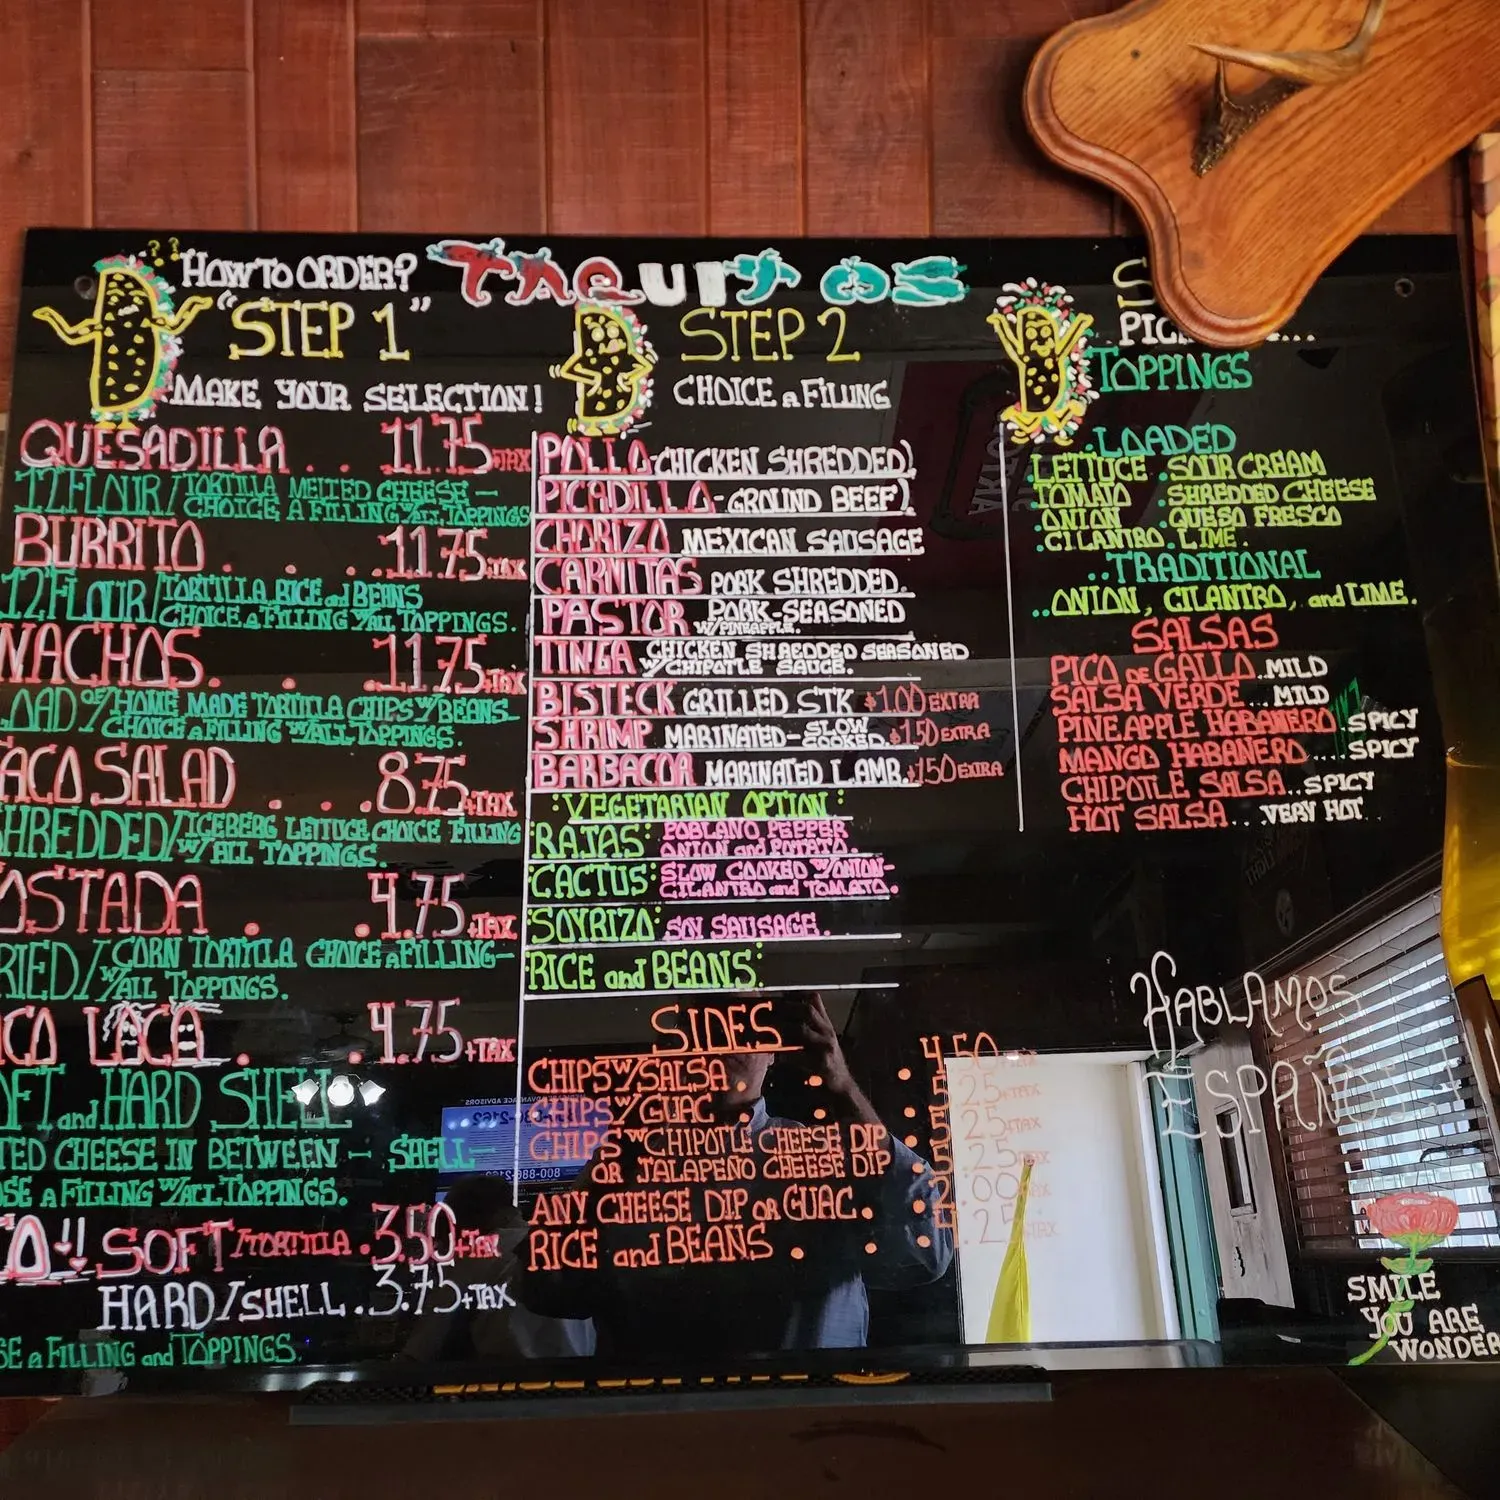 HOW TO ORDER?
TAQUITOS
"STEP 1"
MAKE YOUR SELECTION!
QUESADILLA . . 11.75+TAX
12 FLOUR/TORTILLA MELTED CHEESE -
CHOICE A FILLING W/ALL TOPPINGS
BURRITO . . . . 11.75+TAX
12 FLOUR/TORTILLA RICE and BEANS
CHOICE A FILLING W/ALL TOPPINGS.
NACHOS . . . 11.75+TAX
OAD OF/HOME MADE TORTILLA CHIPS W/BEANS-
CHOICE A FILLING W/ALL TOPPINGS.
ACO SALAD . . . 8.75+TAX
SHREDDED/ICEBERG LETTUCE CHOICE FILLING
W/ALL TOPPINGS.
OSTADA . . 4.75+TAX
RIED/CORN TORTILLA CHOICE A FILLING-
W/ALL TOPPINGS.
ACO LOCA . . 4.75+TAX
OFT and HARD SHELL
TED CHEESE IN BETWEEN - SHELL-
OSE A FILLING W/ALL TOPPINGS.
CO!! SOFT/TORTILLA . 3.50+TAX
HARD/SHELL . 3.75+TAX
SE A FILLING and TOPPINGS.
STEP 2
CHOICE A FILLING
POLLO-CHICKEN SHREDDED)
PICADILLO-GROUND BEEF)
CHORIZO MEXICAN SAUSAGE
CARNITAS PORK SHREDDED.
PASTOR PORK-SEASONED
W/PINEAPPLE.
TINGA CHICKEN SHREDDED SEASONED
W/CHIPOTLE SAUCE.
BISTECK GRILLED STK $1.00 EXTRA
SHRIMP MARINATED-SLOW COOKED. $1.50 EXTRA
BARBACOA MARINATED LAMB. $1.50 EXTRA
:VEGETARIAN OPTION:
RAJAS: POBLANO PEPPER
ONION and POTATO.
:CACTUS: SLOW COOKED W/ONION-
CILANTRO and TOMATO.
:SOYRIZO: SOY SAUSAGE.
:RICE and BEANS:
SIDES
CHIPS W/SALSA . . . 4.50+TAX
CHIPS W/GUAC . . . 5.25+TAX
CHIPS W/CHIPOTLE CHEESE DIP . 5.25+TAX
OR JALAPEÑO CHEESE DIP . 5.25+TAX
ANY CHEESE DIP OR GUAC. . 2.00+TAX
RICE and BEANS . . . 4.25+TAX
TOPPINGS
..LOADED
.LETTUCE .SOUR CREAM
TOMATO .SHREDDED CHEESE
.ONION .QUESO FRESCO
.CILANTRO .LIME.
..TRADITIONAL
..ONION, CILANTRO, and LIME.
SALSAS
PICO DE GALLO..MILD
SALSA VERDE...MILD
PINEAPPLE HABANERO.SPICY
MANGO HABANERO....SPICY
CHIPOTLE SALSA..SPICY
HOT SALSA...VERY HOT
HABLAMOS
ESPAÑOL
SMILE
YOU ARE
WONDER